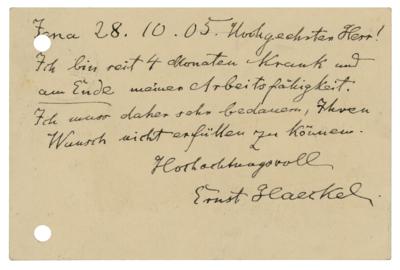 Jena 28. 10. 05. Hochgeehrter Herr!
Ich bin seit 4 Monaten krank und
am Ende meiner Arbeitsfähigkeit.
Ich muss daher sehr bedauern, Ihren
Wunsch nicht erfüllen zu können.
Hochachtungsvoll
Ernst Haeckel.